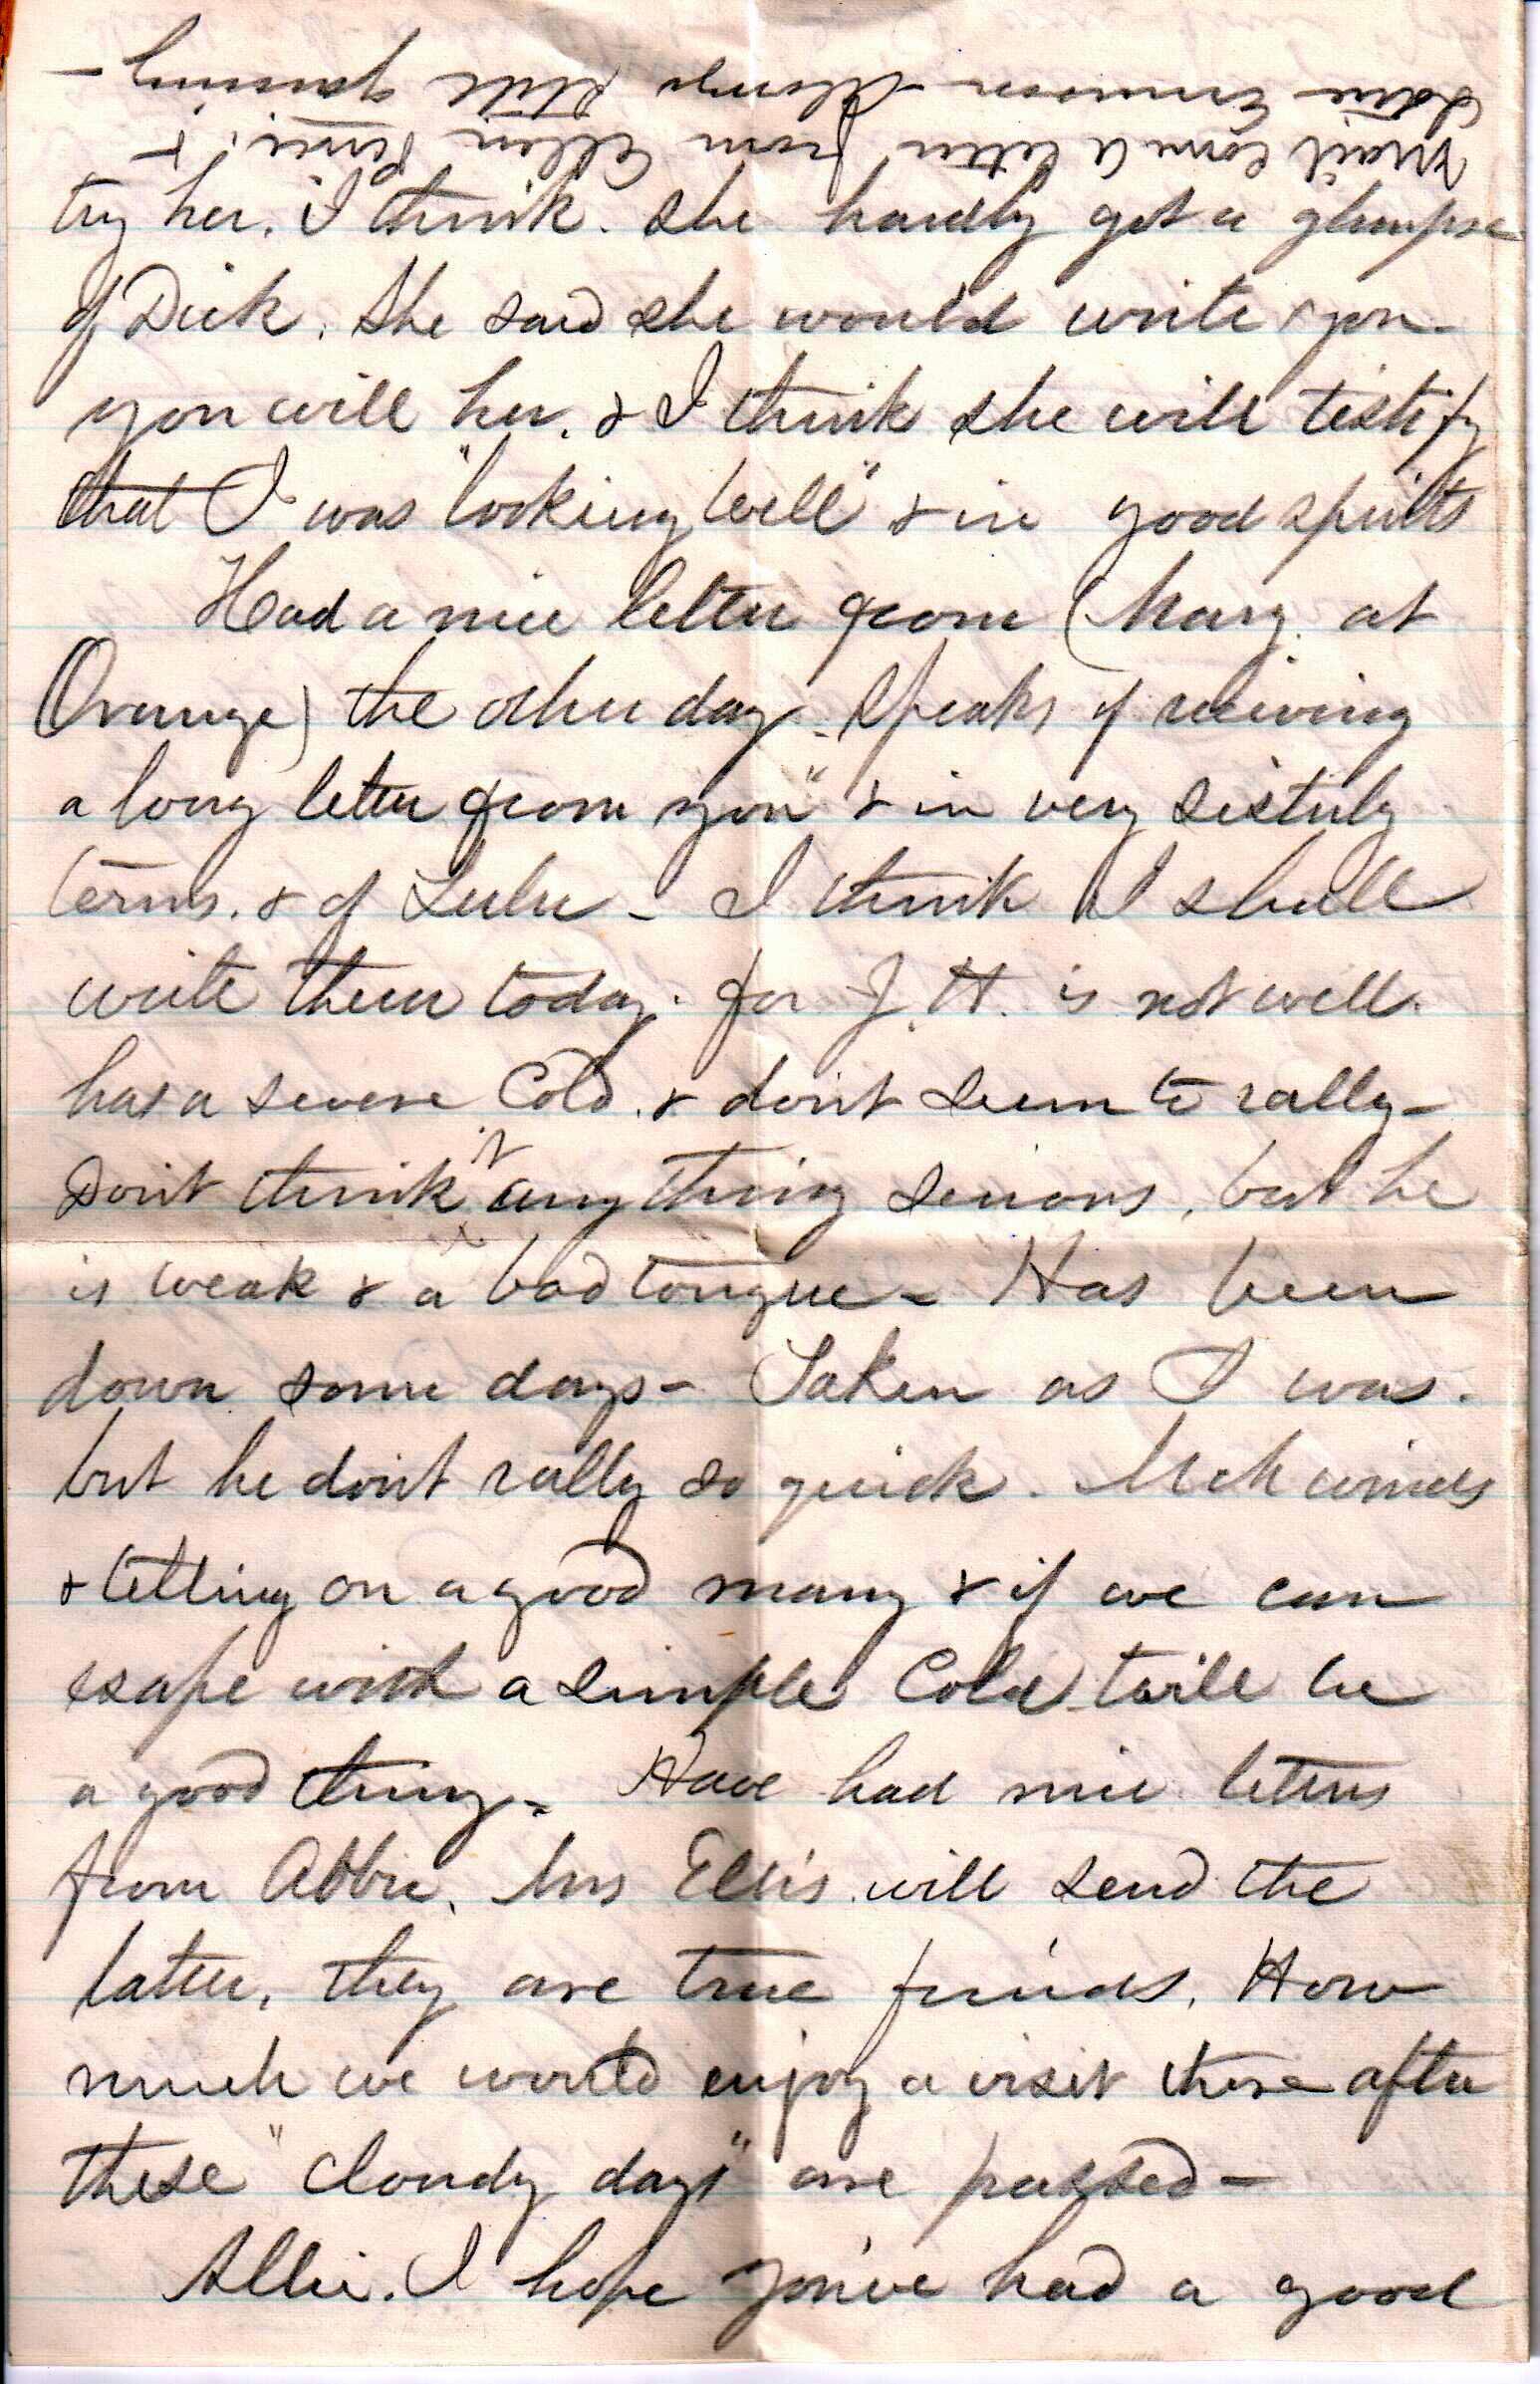 Mail came a letter from Ellen Pierce &
Lottie Emerson - George still gaining -
try her. I think. She hardly got a glimpse
of Dick. She said she would write you -
you will her. & I think she will testify
that I was "looking well" & in good spirits
Had a nice letter from (Mary. at
Orange) the other day - Speaks of receiving
a long letter from you" & in very sisterly
terms. & of Lulu - I think I shall
write them today. for J. H. is not well.
has a severe Cold. & don't seem to rally -
Don't think it anything serious, but he
is weak & a bad tongue - Has been
down some days - Taken as I was.
but he don't rally so quick. Mch winds
& telling on a good many & if we can
esape with a simple Cold twill be
a good thing - Have had nice letters
from Abbie, Mrs Ellis will send the
latter, they are true friends. How
much we would enjoy a visit there after
these "cloudy days" are passed -
Allie. I hope you've had a good